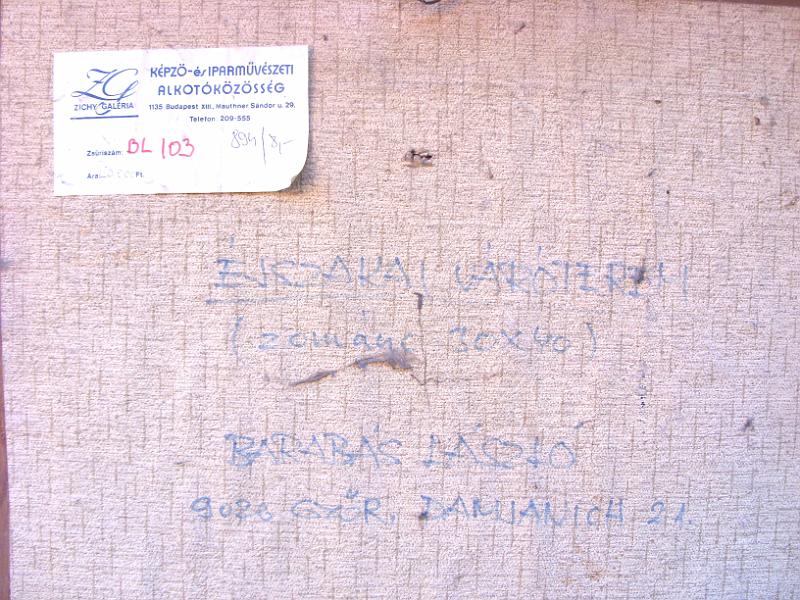 ZG
ZICHY GALÉRIA
KÉPZŐ-és IPARMŰVÉSZETI
ALKOTÓKÖZÖSSÉG
1135 Budapest XIII., Mauthner Sándor u. 29.
Telefon: 209-555
Zsűriszám: BL 103
894/8,-
Ára: Ft.
ÉJSZAKAI VÁRÓTEREM
(zománc 30x40)
BARABÁS LÁSZLÓ
GYŐR, DAMJANICH 21.